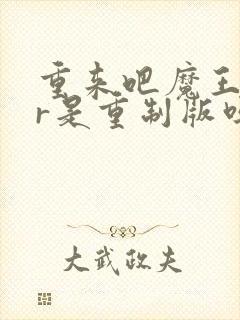 重来吧魔王
r是重制版吗
大武政夫